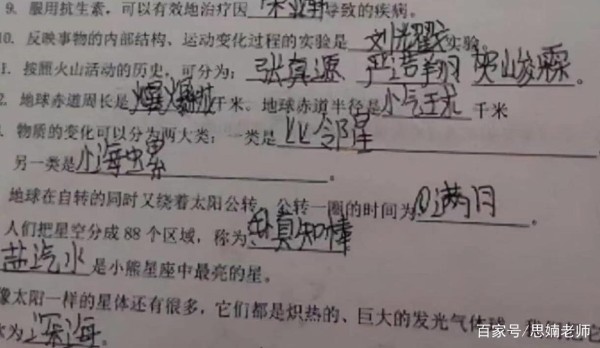 9. 服用抗生素，可以有效地治疗因宋亚轩导致的疾病。
10. 反映事物的内部结构、运动变化过程的实验是刘耀实验。
1. 按照火山活动的历史，可分为：张真源 严浩翔 贺峻霖。
2. 地球赤道周长是爆爆千米、地球赤道半径是小气王千米
物质的变化可以分为两大类：一类是比邻星
另一类是小海螺。
地球在自转的同时又绕着太阳公转，公转一圈的时间为满月。
人们把星空分成 88 个区域，称为真知棒
盐汽水是小熊星座中最亮的星。
像太阳一样的星体还有很多，它们都是炽热的、巨大的发光气体球
为深海。
百家号/思婻老师